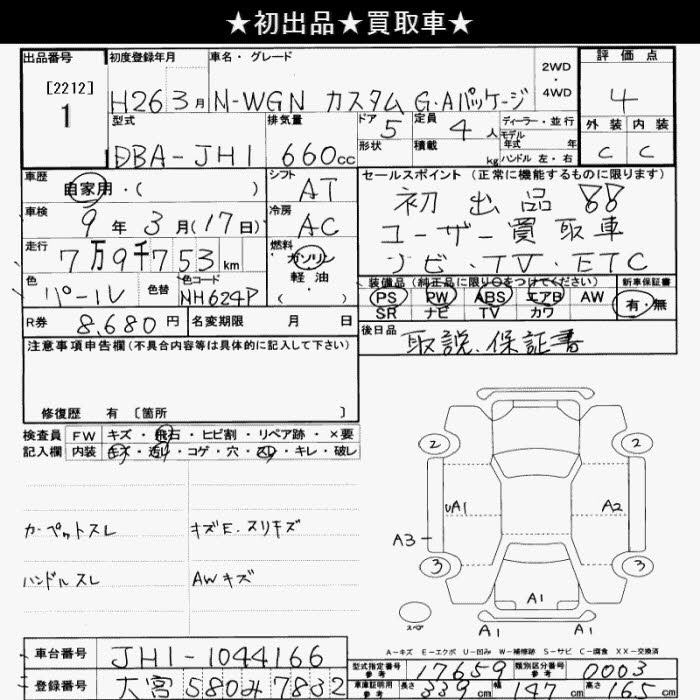 ★初出品★買取車★
出品番号 初度登録年月 車名・グレード 2WD ・4WD 評価点
[2212] 1 H26 3月 N-WGN カスタム G・Aパッケージ 4
型式 排気量 ドア 5 定員 4人 ディーラー・並行 外装 内装
DBA-JH1 660cc 形状 積載 kg モデル年式 年 C C
ハンドル 左・右
車歴 自家用・( ) シフト AT セールスポイント(正常に機能するものに限ります)
車検 9年3月(17日) 冷房 AC 初出品!!
ユーザー買取車
走行 7万9千753km 燃料 ガソリン 軽油 ( ) ナビ・TV・ETC
色 パール 色替 色コード NH624P 装備品(純正品に限り○をつけてください) 新車保証書
PS PW ABS エアB AW 有・無
SR ナビ TV カワ
R券 8,680円 名変期限 月 日 後日品 取説、保証書
注意事項申告欄(不具合内容等は具体的に記入して下さい)
修復歴 有 〔箇所 〕
検査員 FW キズ・飛石・ヒビ割・リペア跡・×要
記入欄 内装 キズ・汚レ・コゲ・穴・スレ・キレ・破レ
2 2
UA1 A2
カーペットスレ キズE.スリキズ
A3
ハンドルスレ AWキズ
3 3
A1
スペア
A1 A1
A-キズ E-エクボ U-凹み W-補修跡 S-サビ C-腐食 XX-交換済
車台番号 JH1-1044166 型式指定番号 参考 17659 類別区分番号 参考 0003
登録番号 大宮 580み7832 車庫証明用 参考 長さ 339cm 幅 147cm 高さ 165cm